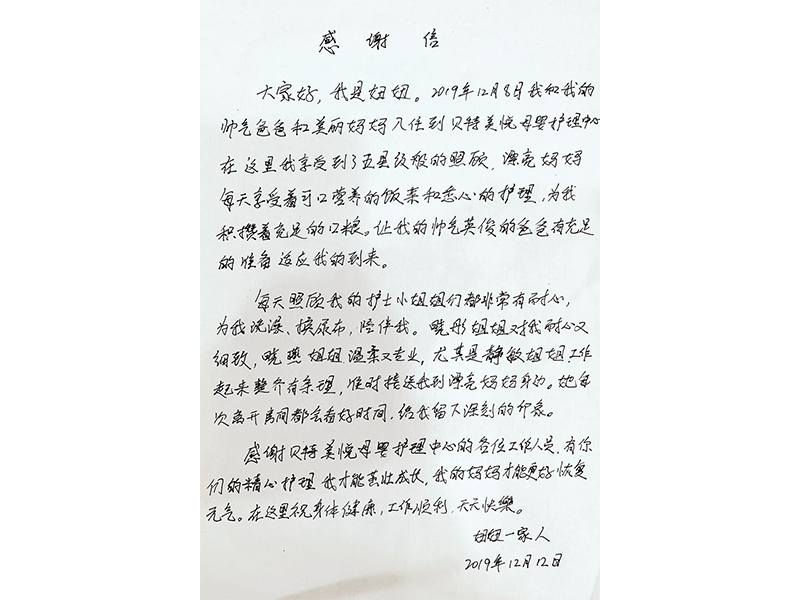 感谢信
大家好，我是妞妞。2019年12月8日我和我的
帅气爸爸和美丽妈妈入住到贝特美悦母婴护理中心
在这里我享受到了五星级般的照顾，漂亮妈妈
每天享受着可口营养的饭菜和悉心的护理，为我
积攒着充足的口粮。让我的帅气英俊的爸爸有充足
的准备适应我的到来。
每天照顾我的护士小姐姐们都非常有耐心，
为我洗澡、换尿布，陪伴我。晓彤姐姐对我耐心又
细致，晓燕姐姐温柔又专业，尤其是静敏姐姐工作
起来整齐有条理，准时接送我到漂亮妈妈身边。她每
次离开房间都会看好时间，给我留下深刻的印象。
感谢贝特美悦母婴护理中心的各位工作人员，有你
们的精心护理我才能茁壮成长，我的妈妈才能更好恢复
元气。在这里祝身体健康，工作顺利，天天快樂。
妞妞一家人
2019年12月12日